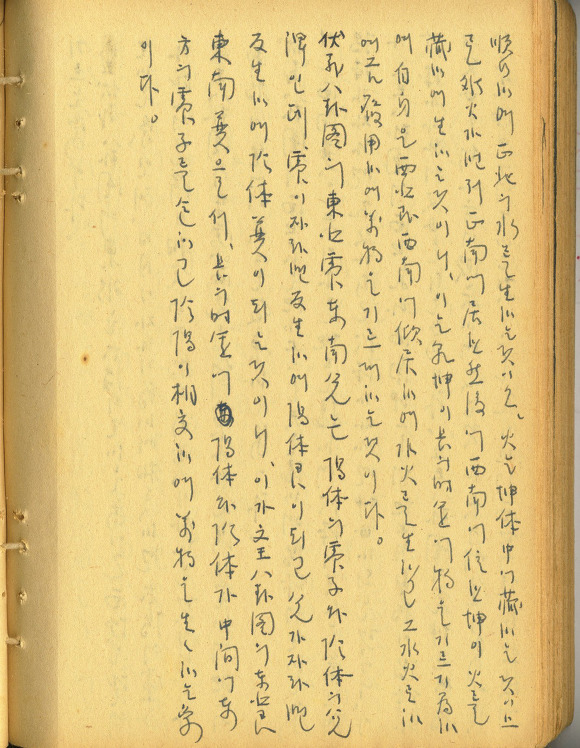 順行하여 正北의 水를 生하는것이오。火는 坤体中에 藏하는것이므
로 正南에 居한然後에 西南에 位한 坤이 火를
藏하여 生하는것이니, 이는 乾坤이 長의 에 物을 기르기 爲하
여 自身은 西北과 西南에 傾居하여 水火를 生하고 그 水火로 하
여금 發用하여 萬物을 기르게 하는것이다。
伏羲八卦圖의 東北震 東南兌는 陽体의 震子와 陰体의 兌
인데, 震이 자라면 反生하여 陽体艮이 되고 兌가 자라면
反生하여 陰体 巽이 되는것이니, 이가 文王八卦圖의 東北艮
東南巽으로서, 長의 에 陽体와 陰体가 中間에 東
方의 震子를 包하고 陰陽이 相交하여 萬物을 生々하는 象
이다。